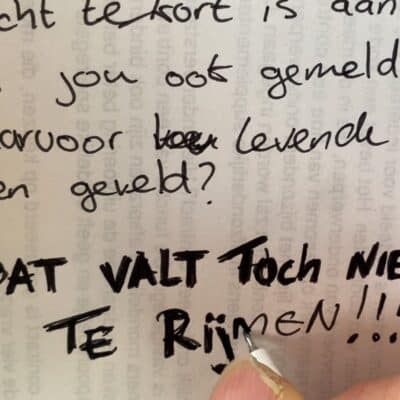 cht te kort is aan
jou ook gemeld
arvoor levende
en geveld?
DAT VALT TOCH NIE
TE RIJMEN!!!